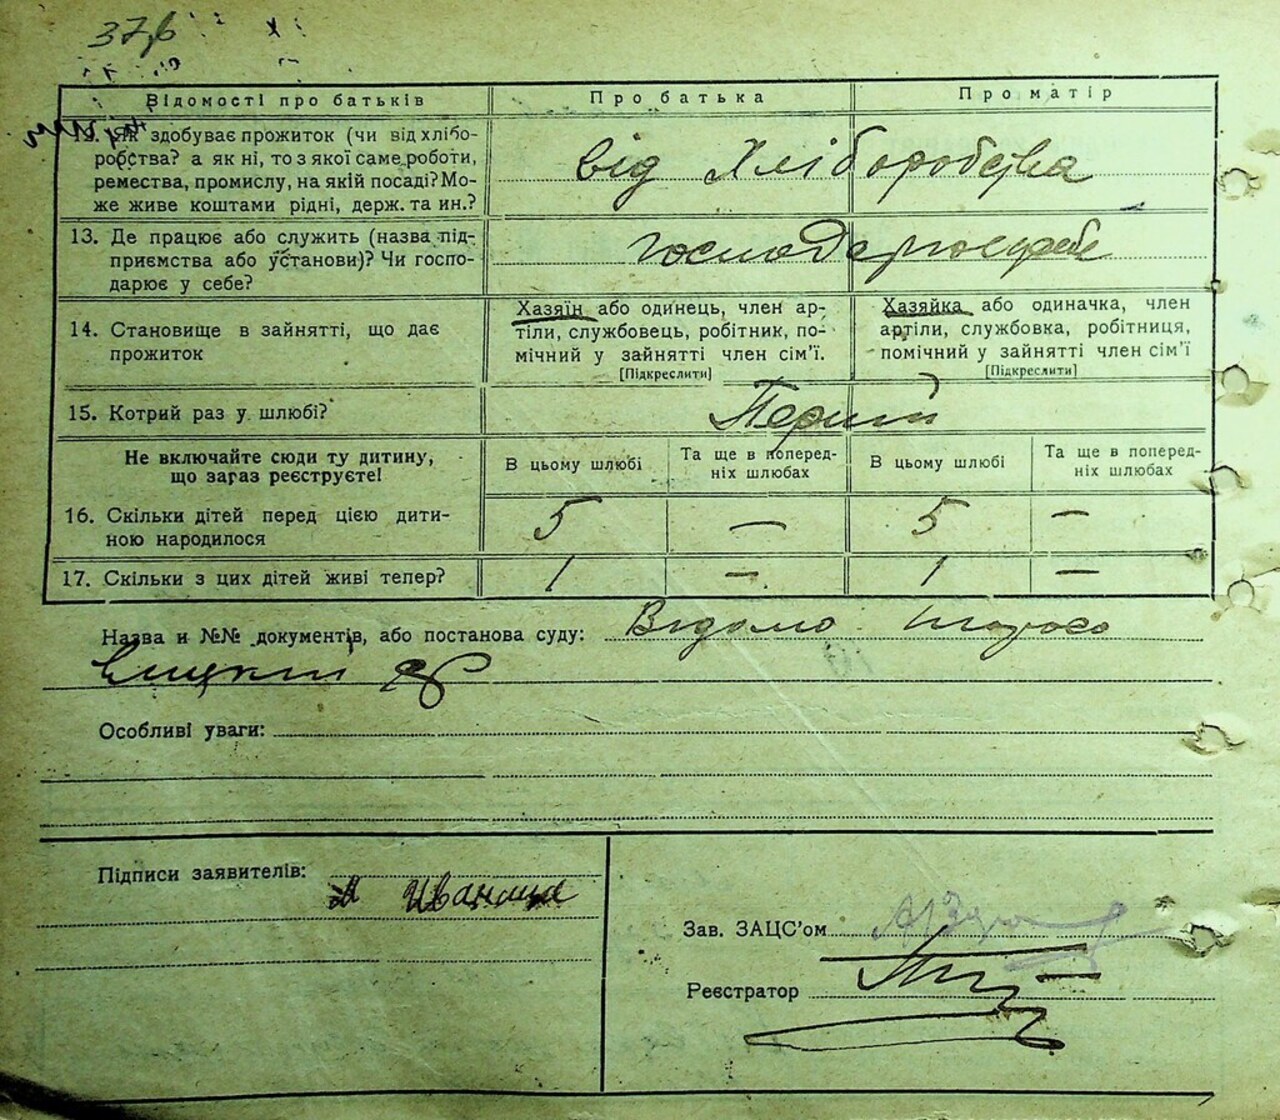 37б
Відомості про батьків
Про батька
Про матір
Як здобуває прожиток (чи від хлібо-
робства? а як ні, то з якої саме роботи,
ремества, промислу, на якій посаді? Мо-
же живе коштами рідні, держ. та ин.?
від Хліборобства
13. Де працює або служить (назва під-
приємства або установи)? Чи госпо-
дарює у себе?
14. Становище в зайнятті, що дає
прожиток
Хазяїн або одинець, член ар-
тіли, службовець, робітник, по-
мічний у зайнятті член сім'ї.
[Підкреслити]
Хазяйка або одиначка, член
артіли, службовка, робітниця,
помічний у зайнятті член сім'ї
[Підкреслити]
15. Котрий раз у шлюбі?
Перший
Не включайте сюди ту дитину,
що зараз реєструєте!
В цьому шлюбі
Та ще в поперед-
ніх шлюбах
В цьому шлюбі
Та ще в поперед-
ніх шлюбах
16. Скільки дітей перед цією дити-
ною народилося
5 — 5 —
17. Скільки з цих дітей живі тепер?
1 — 1 —
Назва и №№ документів, або постанова суду: Відомо
Особливі уваги:
Підписи заявителів:
Зав. ЗАЦС'ом
Реєстратор